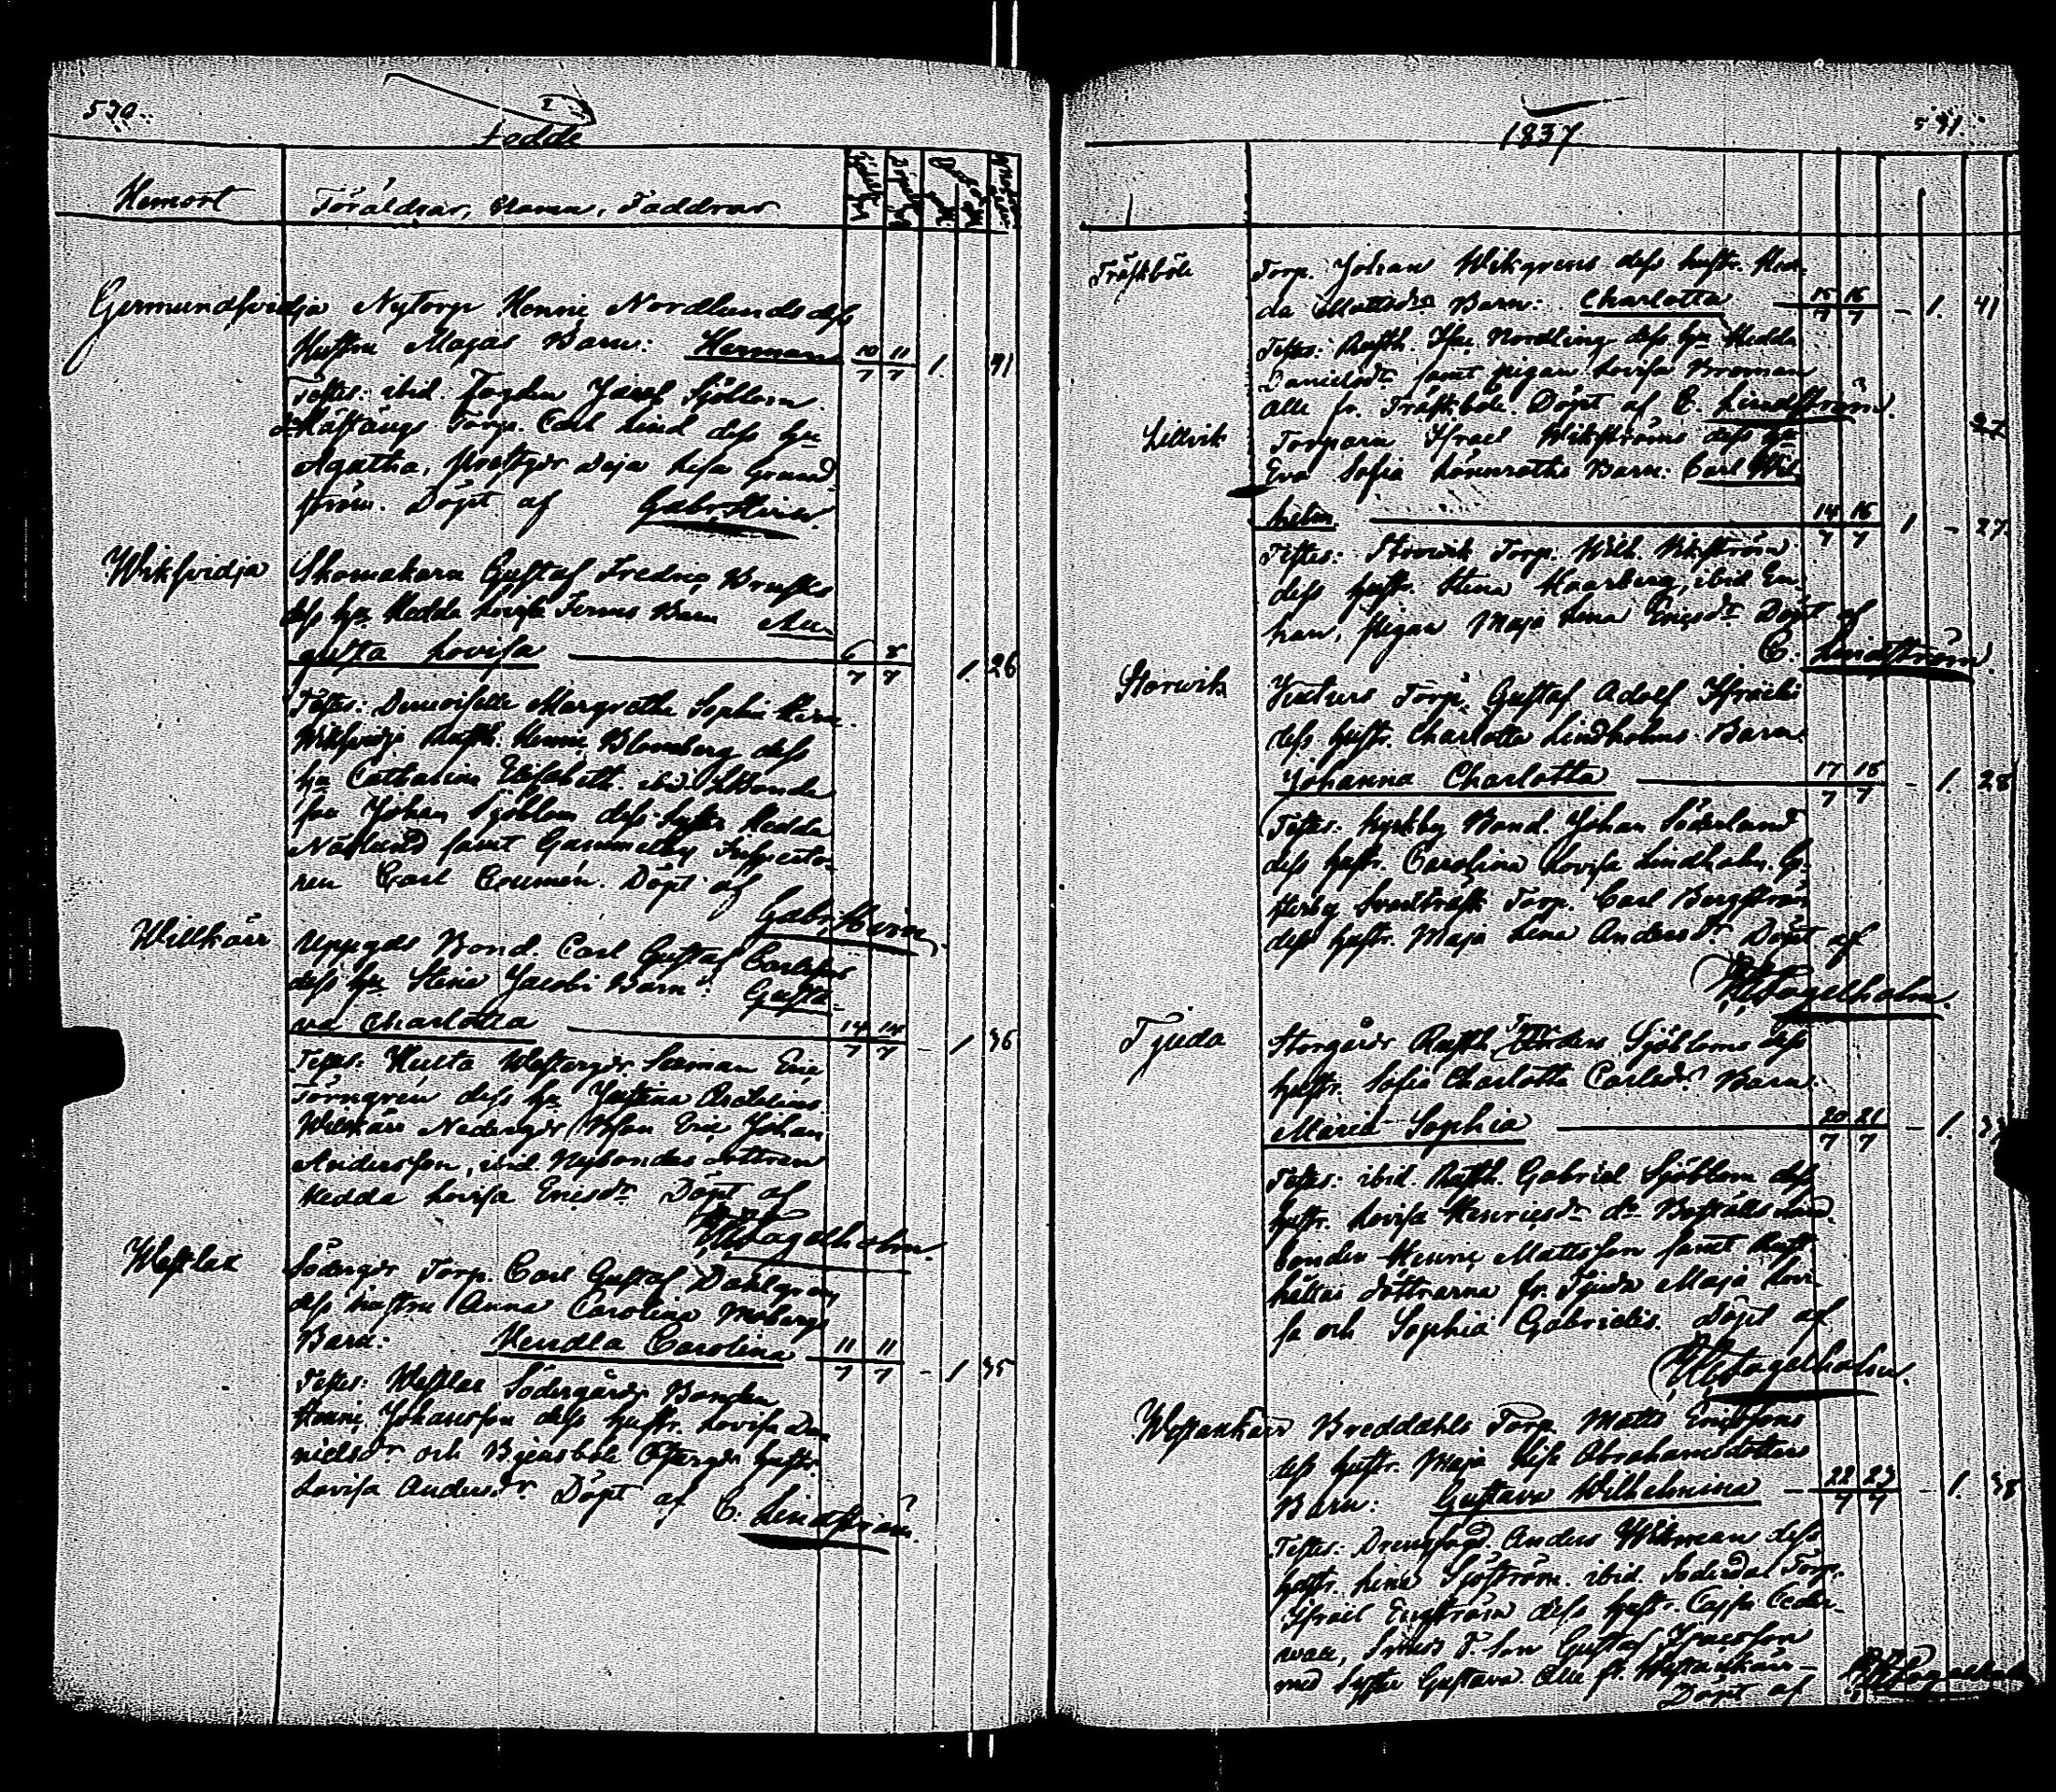 530.
Födde
Hemort
Föräldrar, Namn, Faddrar
Germundsvedja Nytorp Henric Nordlunds dess
Hustru Majas Barn: Herman 10/7 11/7 1. 41
Testes: ibid. Fogden Jacob Sjöblom
Torp. Carl Lind dess hu
Agatha, Deja Lisa Grand
ström. Döpt af Gabr. Hirn.
Wiksvidja Skomakarn Gustaf Fredric
dess hu Hedda Lovisa Barn Au-
gusta Lovisa 6/7 8/7 1. 26
Testes: Demoiselle Margretha Sophia Hirn
Wiksvidja Rusth. Henric Blomberg dess
hu Catharina Elisabeth. ibid.
Johan Sjöblom dess Hedda
Näslund samt Gammelby Inspecto-
ren Carl. Döpt af
Gabr. Hirn.
Willkärr Uppgds Bond. Carl Gustaf Carlssons
dess hu Stina Jacobs Barn: Gusta-
va Charlotta 14/7 14/7 - 1 36
Testes: Hulta Westergdr Eric
Törngrén dess hu Justina
Willkärr Nedergdr Bson Eric Johan
Andersson, ibid. dottren
Hedda Lovisa Ericsdr Döpt af
Fagelholm.
Westlax Södergdr Torp. Carl Gustaf Dahlgren
dess hustru Anna Carolina Mobergs
Barn: Hendla Carolina 11/7 11/7 - 1 35
Testes: Westlax Södergårds Bonden
Henric Johansson dess hustr. Lovisa Da-
nielsdr och Bjensböle Östergdr hustr.
Lovisa Andersdr. Döpt af C. Lindström
1837
531.
Träskböle Torp. Johan Wikgrens dess hustr. Hed-
da Mattsdr Barn: Charlotta 15/7 16/7 - 1. 41
Testes: Rusth. Isac Nordling dess hu Hedda
Danielsdr samt pigan Lovisa Broman
Alle fr. Träskböle. Döpt af C. Lindström.
27
Lillvik Torparn Israel Wikströms dess hu
Eva Sofia Lönnroths Barn: Carl Wil-
helm 14/7 16/7 1 - 27.
Testes: Storvik Torp. Wilh. Wikström
dess hustr. Stina Hagberg, ibid. En-
kan, Pigan Maja Lena Ericsdr Döpt af
C. Lindström.
Storvik Torp. Gustaf Adolf Israels
dess hustr. Charlotta Lindholms Barn.
Johanna Charlotta 17/7 18/7 - 1. 28
Testes: Kyrkby Bond. Johan Söderlund
dess hustr. Carolina Lovisa Lindholm,
Torp. Carl Bergström
dess hustr. Maja Lena Andersdr. Döpt af
Fagelholm.
Tjuda Storgårds Rusth. Anders Sjöbloms dess
hustr. Sofia Charlotta Carlsdr. Barn:
Maria Sophia 20/7 21/7 - 1.
Testes: ibid. Rusth. Gabriel Sjöblom dess
hustr. Lovisa Henricsdr do Boställs Land-
bonden Henric Mattsson samt Rust-
hållar döttrarna fr. Tjuda Maja Lovi-
sa och Sophia Gabriels. Döpt af
Fagelholm.
Westankärr Breddahls Torp. Matts Ericssons
dess hustr. Maja Lisa Abrahamsdotters
Barn: Gustava Wilhelmina 22/7 23/7 - 1. 38
Testes: Drengfogd. Anders Wikman dess
hustr. Lena Sjöström. ibid. Söderdal Torp.
Israel Engström dess hustr. Cajsa Ceder-
wall, Gustaf Isacsson
med Syster Gustava. Alle fr. Westankärr
Döpt af Fagelholm